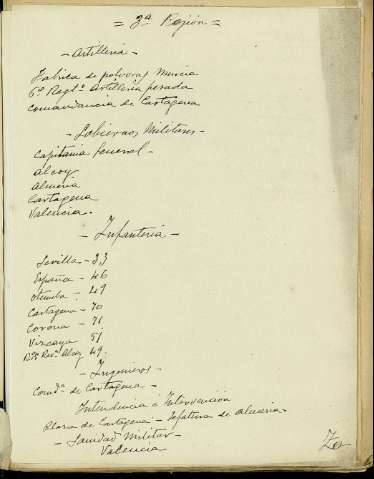 = 3ª Región =
- Artilleria -
Fabrica de polvoras Murcia
6º Regtº Artilleria pesada
Comandancia de Cartagena
- Gobiernos Militares -
Capitania General -
Alcoy
Almeria
Cartagena
Valencia.
- Infanteria -
Sevilla - 33
España - 46
Otumba - 49
Cartagena - 70
Corona - 71
Vizcaya 51
Alcoy 49.
- Ingenieros -
Comdª de Cartagena -
Intendencia é Intervención
Plaza de Cartagena - Jefatura de Almeria.
- Sanidad Militar -
Valencia